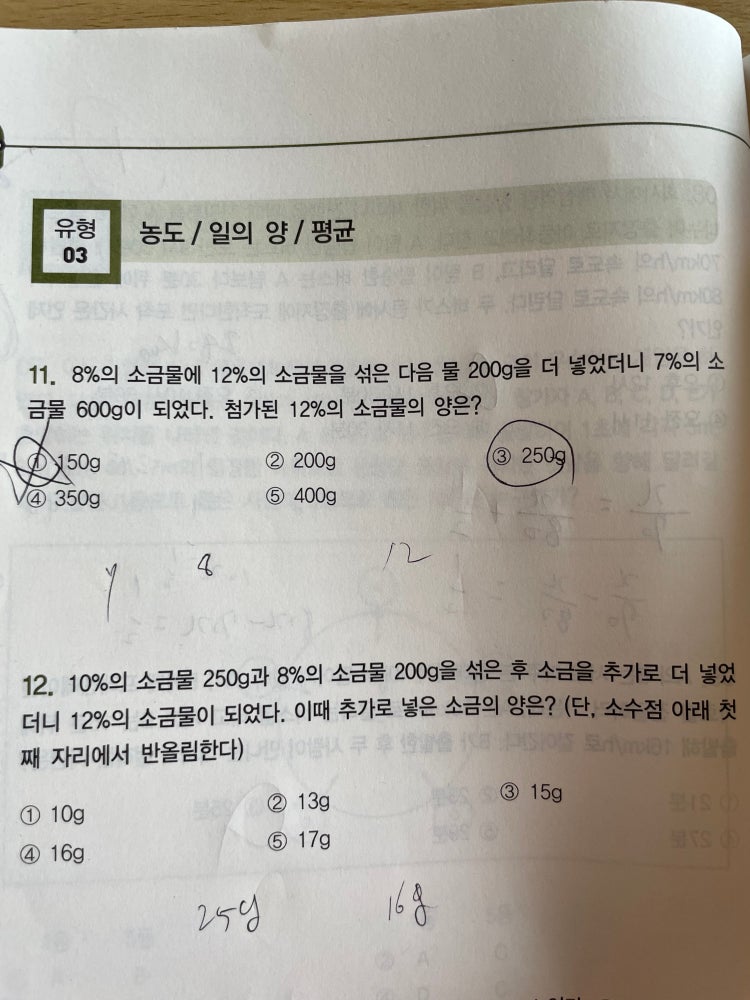 유형
03
농도 / 일의 양 / 평균
11. 8%의 소금물에 12%의 소금물을 섞은 다음 물 200g을 더 넣었더니 7%의 소
금물 600g이 되었다. 첨가된 12%의 소금물의 양은?
① 150g ② 200g ③ 250g
④ 350g ⑤ 400g
y 8 12
12. 10%의 소금물 250g과 8%의 소금물 200g을 섞은 후 소금을 추가로 더 넣었
더니 12%의 소금물이 되었다. 이때 추가로 넣은 소금의 양은? (단, 소수점 아래 첫
째 자리에서 반올림한다)
① 10g ② 13g ③ 15g
④ 16g ⑤ 17g
25g 16g